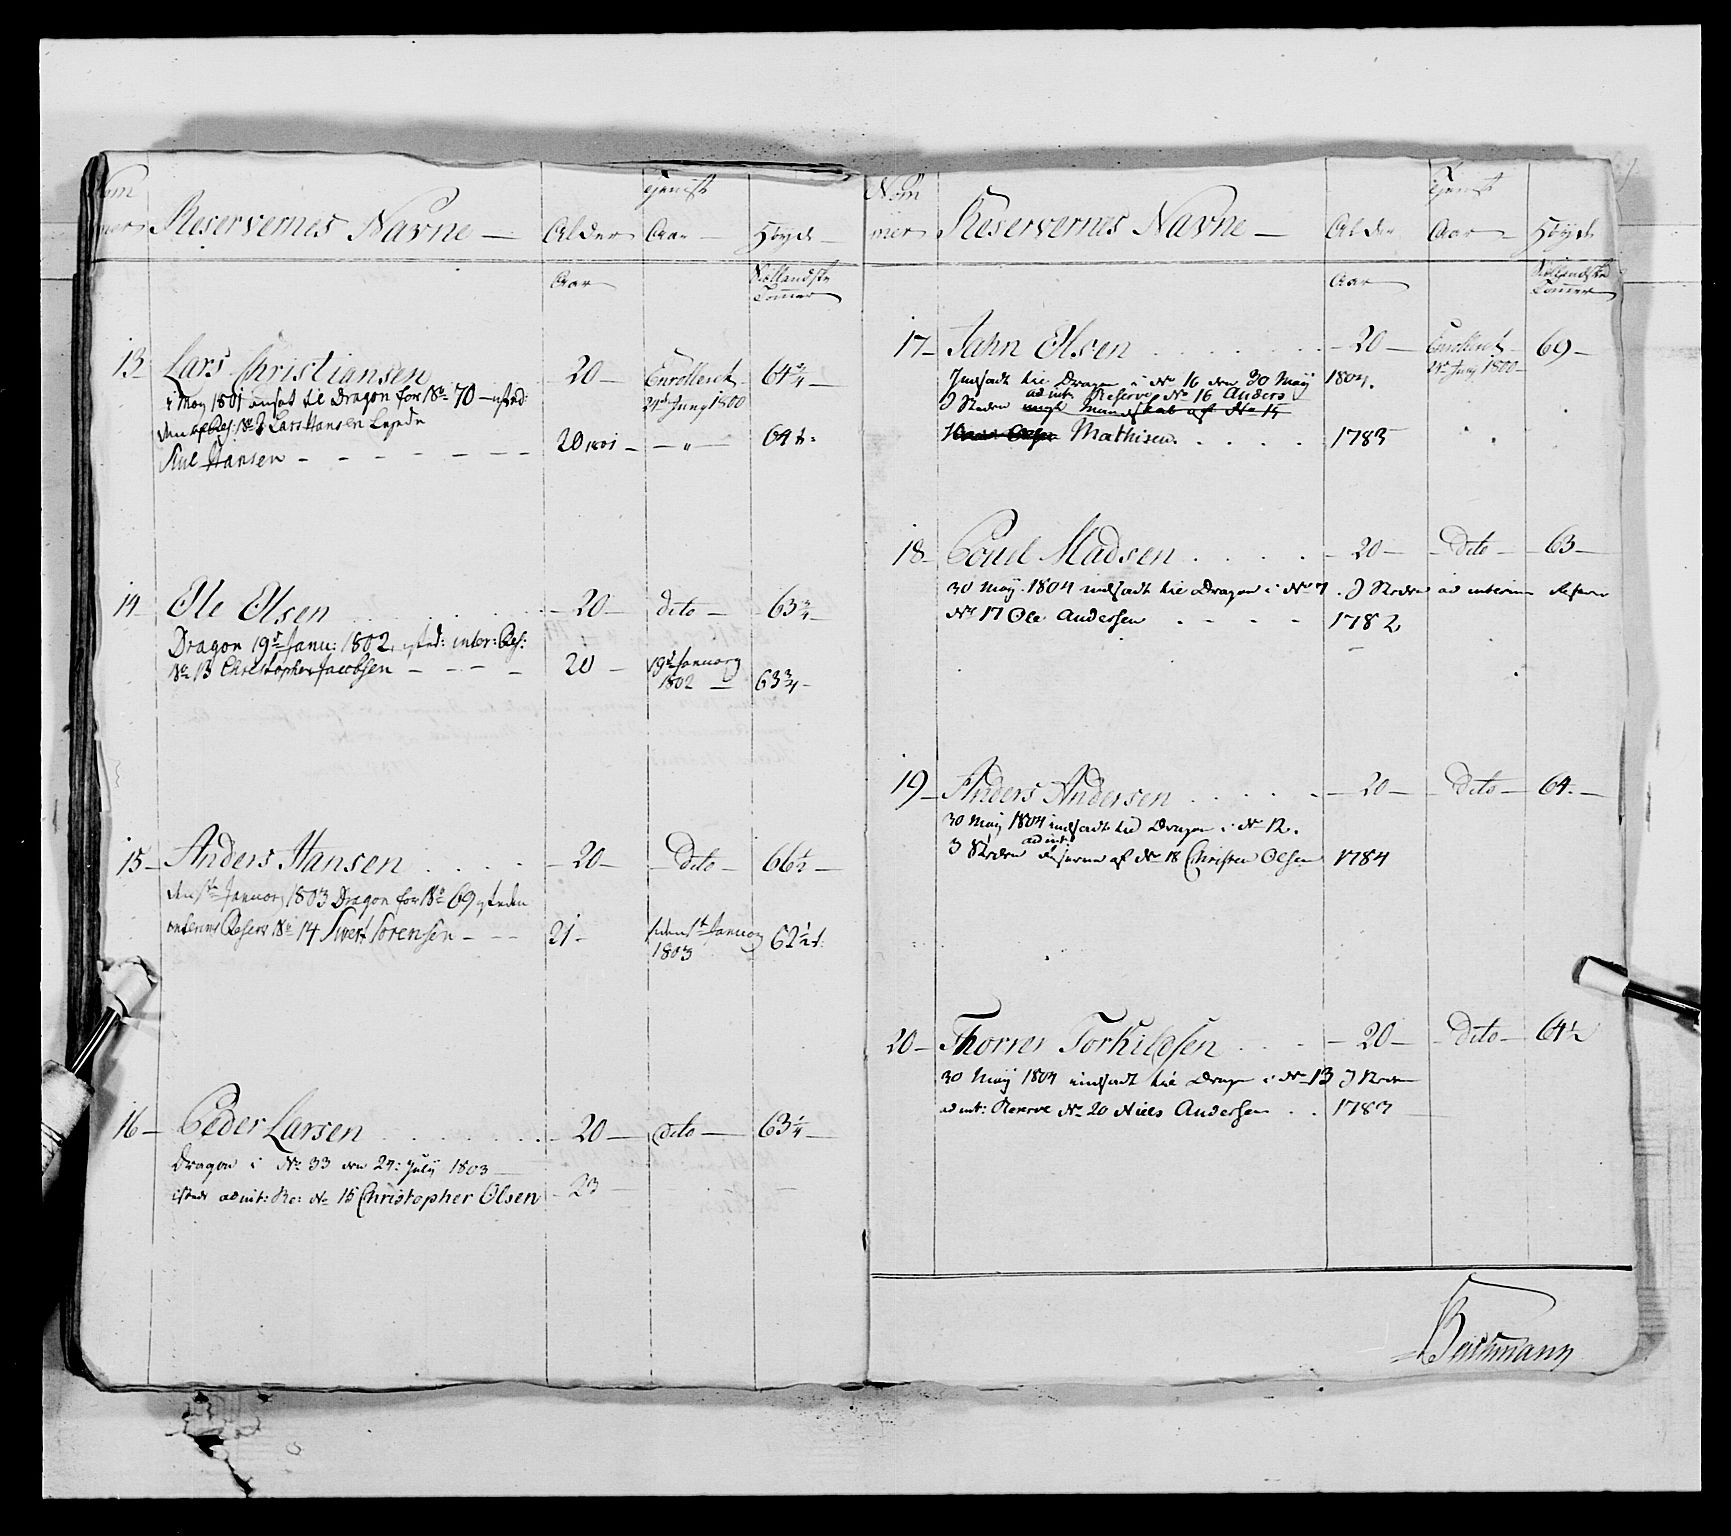 Nom mer Reservernes Navne Alder Tjeniste Aar Höyde
Aar Hollandske Tommer
13 Lars Christiansen 20 Enrolleret 24d Juny 1800 64 3/4
May 1801 ansat til Dragon for No 70
Lars Hansen
Hansen 20 1801 — " — 64 t:
14 Ole Olsen 20 dito 63 3/4
Dragon 19d Janu: 1802, isted: inter: Res:
No 13 Christopher Jacobsen 20 19d January 1802 63 3/4
15 Anders Hansen 20 Dito 66 1/2
den 1te January 1803 Dragon for No 69 isteden
interims Reserv No 14 Sivert Sorensen 21 siden 1te January 1803 62 1/2 t:
16 Peder Larsen 20 dito 63 1/4
Dragon i No 33 den 24: July 1803
istedt ad int: Re: No 15 Christopher Olsen 23
Nom mer Reservernes Navne Alder Tjenist Aar Höyde
Aar Hollandske Tommer
17 Jahn Olsen 20 Enrolleret 24 Juny 1800 69
Indsadt til Dragon i No 16 den 30 May 1804.
I Steden ad int: Reserve No 16 Anders
Mathisen 1783
18 Poul Madsen 20 Dito 63
30 May 1804 indsadt til Dragon i No 7. I Steden ad interim Reserve
No 17 Ole Andersen 1782
19 Anders Andersen 20 Dito 64
30 May 1804 indsadt til Dragon i No 12.
I Steden ad int: Reserve af No 18 Christen Olsen 1784
20 Thorrer Torkildsen 20 Dito 64 1/2
30 May 1804 indsadt til Dragon i No 13 I Steden
ad int: Reserve No 20 Niels Andersen 1783